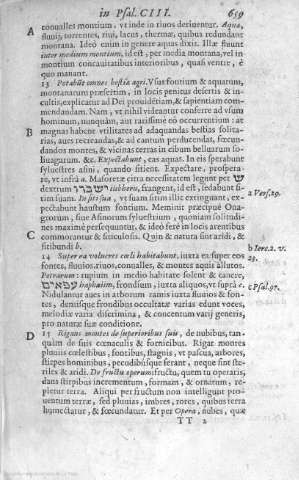 in Psal. CIII. 659
conualles montium, vt inde in riuos deriuentur. Aquæ,
A fluuij, torrentes, riui, lacus, thermæ, quibus redundant
montana. Ideò enim in genere aquas dixit. Illæ fluunt
inter medium montium, id est, per media montana, vel in
montium concauitatibus interioribus, quasi ventre, è
quo manant.
13 Potabūt omnes bestiæ agri. Vsus fontium & aquarum,
montanarum præsertim, in locis penitus desertis & in-
cultis, explicatur ad Dei prouidētiam, & sapientiam com-
mendandam. Nam, vt nihil videantur conferre ad vsum
hominum, nunquàm, aut rarissimè eò occurrentium: at
B magnas habent vtilitates ad adaquandas bestias solita-
rias, aues recreandas, & ad cantum perducendas, fœcun-
dandos montes, & vicinas terras in cibum belluarum so-
liuagarum. &c. Expectabunt, eas aquat. In eis sperabunt
syluestres asini, quando sitient. Expectare, prospera-
re, vt infrà a. Masoretæ citra necessitatem legunt per
dextrum ש ישברו iisbberu, frangent, id est, sedabunt si- a Vers. 29.
tim suam. In siti sua, vt suam sitim illic extinguant, ex-
pectabunt haustum fontium. Meminit præcipuè Ona-
grorum, siue Asinorum syluestrium, quoniam solitudi-
C nes maximè persequuntur, & ideò ferè in locis arentibus
commorantur & siticulosis. Quin & natura sunt aridi, &
sitibundi b. b Iere. 2. v.
14 Super ea volucres cœli habitabunt, iuxta ex super eos 23.
fontes, fluuios, riuos, conualles, & montes aquis allutos.
Petrarum] rupium in medio habitate solent & canere,
עפאים haphaiim, frondium, iuxta aliquos, vt suprà c. c Psal. 97.
Nidulantur aues in arborum ramis iuxta fluuios & fon-
tes, densisque frondibus occultatæ varias edunt voces,
melodia varia discrimina, & concentum varij generis,
pro naturæ suæ conditione.
D 15 Rigans montes de superioribus suis, de nubibus, tan-
quàm de suis cœnaculis & fornicibus. Rigat montes
pluuiis cœlestibus, fontibus, stagnis, vt pascua, arbores,
stirpes hominibus, pecudibúsque ferant, neque sint ste-
riles & aridi. De fructu operum] fructu, quem tu operaris,
dans stirpibus incrementum, formam, & ornatum, re-
pletur terra. Aliqui per fructum non intelligunt pro-
uentum terræ, sed pluuias, imbres, rores, quibus terra
humectatur, & fœcundatur. Et per Opera, nubes, quæ
TT 2